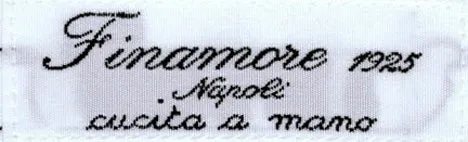 Finamore 1925
Napoli
cucita a mano